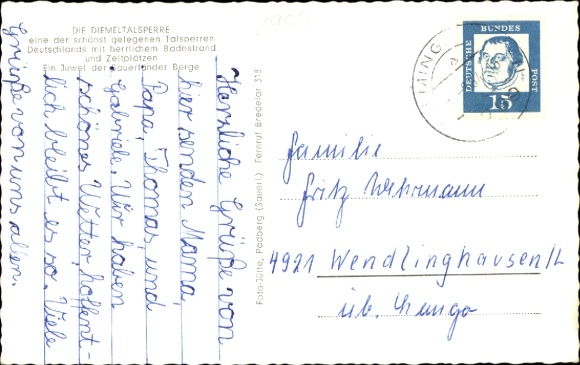 1964
DIE DIEMELTALSPERRE
eine der schönst gelegenen Talsperren
Deutschlands mit herrlichem Badestrand
und Zeltplätzen
Ein Juwel der Sauerländer Berge
Herzliche Grüße von
hier senden Mama,
Papa, Thomas und
Gabriele. Wir haben
schönes Wetter, hoffent-
lich bleibt es so. Viele
Grüße von uns allen.
Foto-Jütte, Padberg (Sauerl.) Fernruf Bredelar 318
DEUTSCHE BUNDES POST
15
Familie
Fritz Wehrmann
4921 Wendlinghausen/L
üb. Lemgo